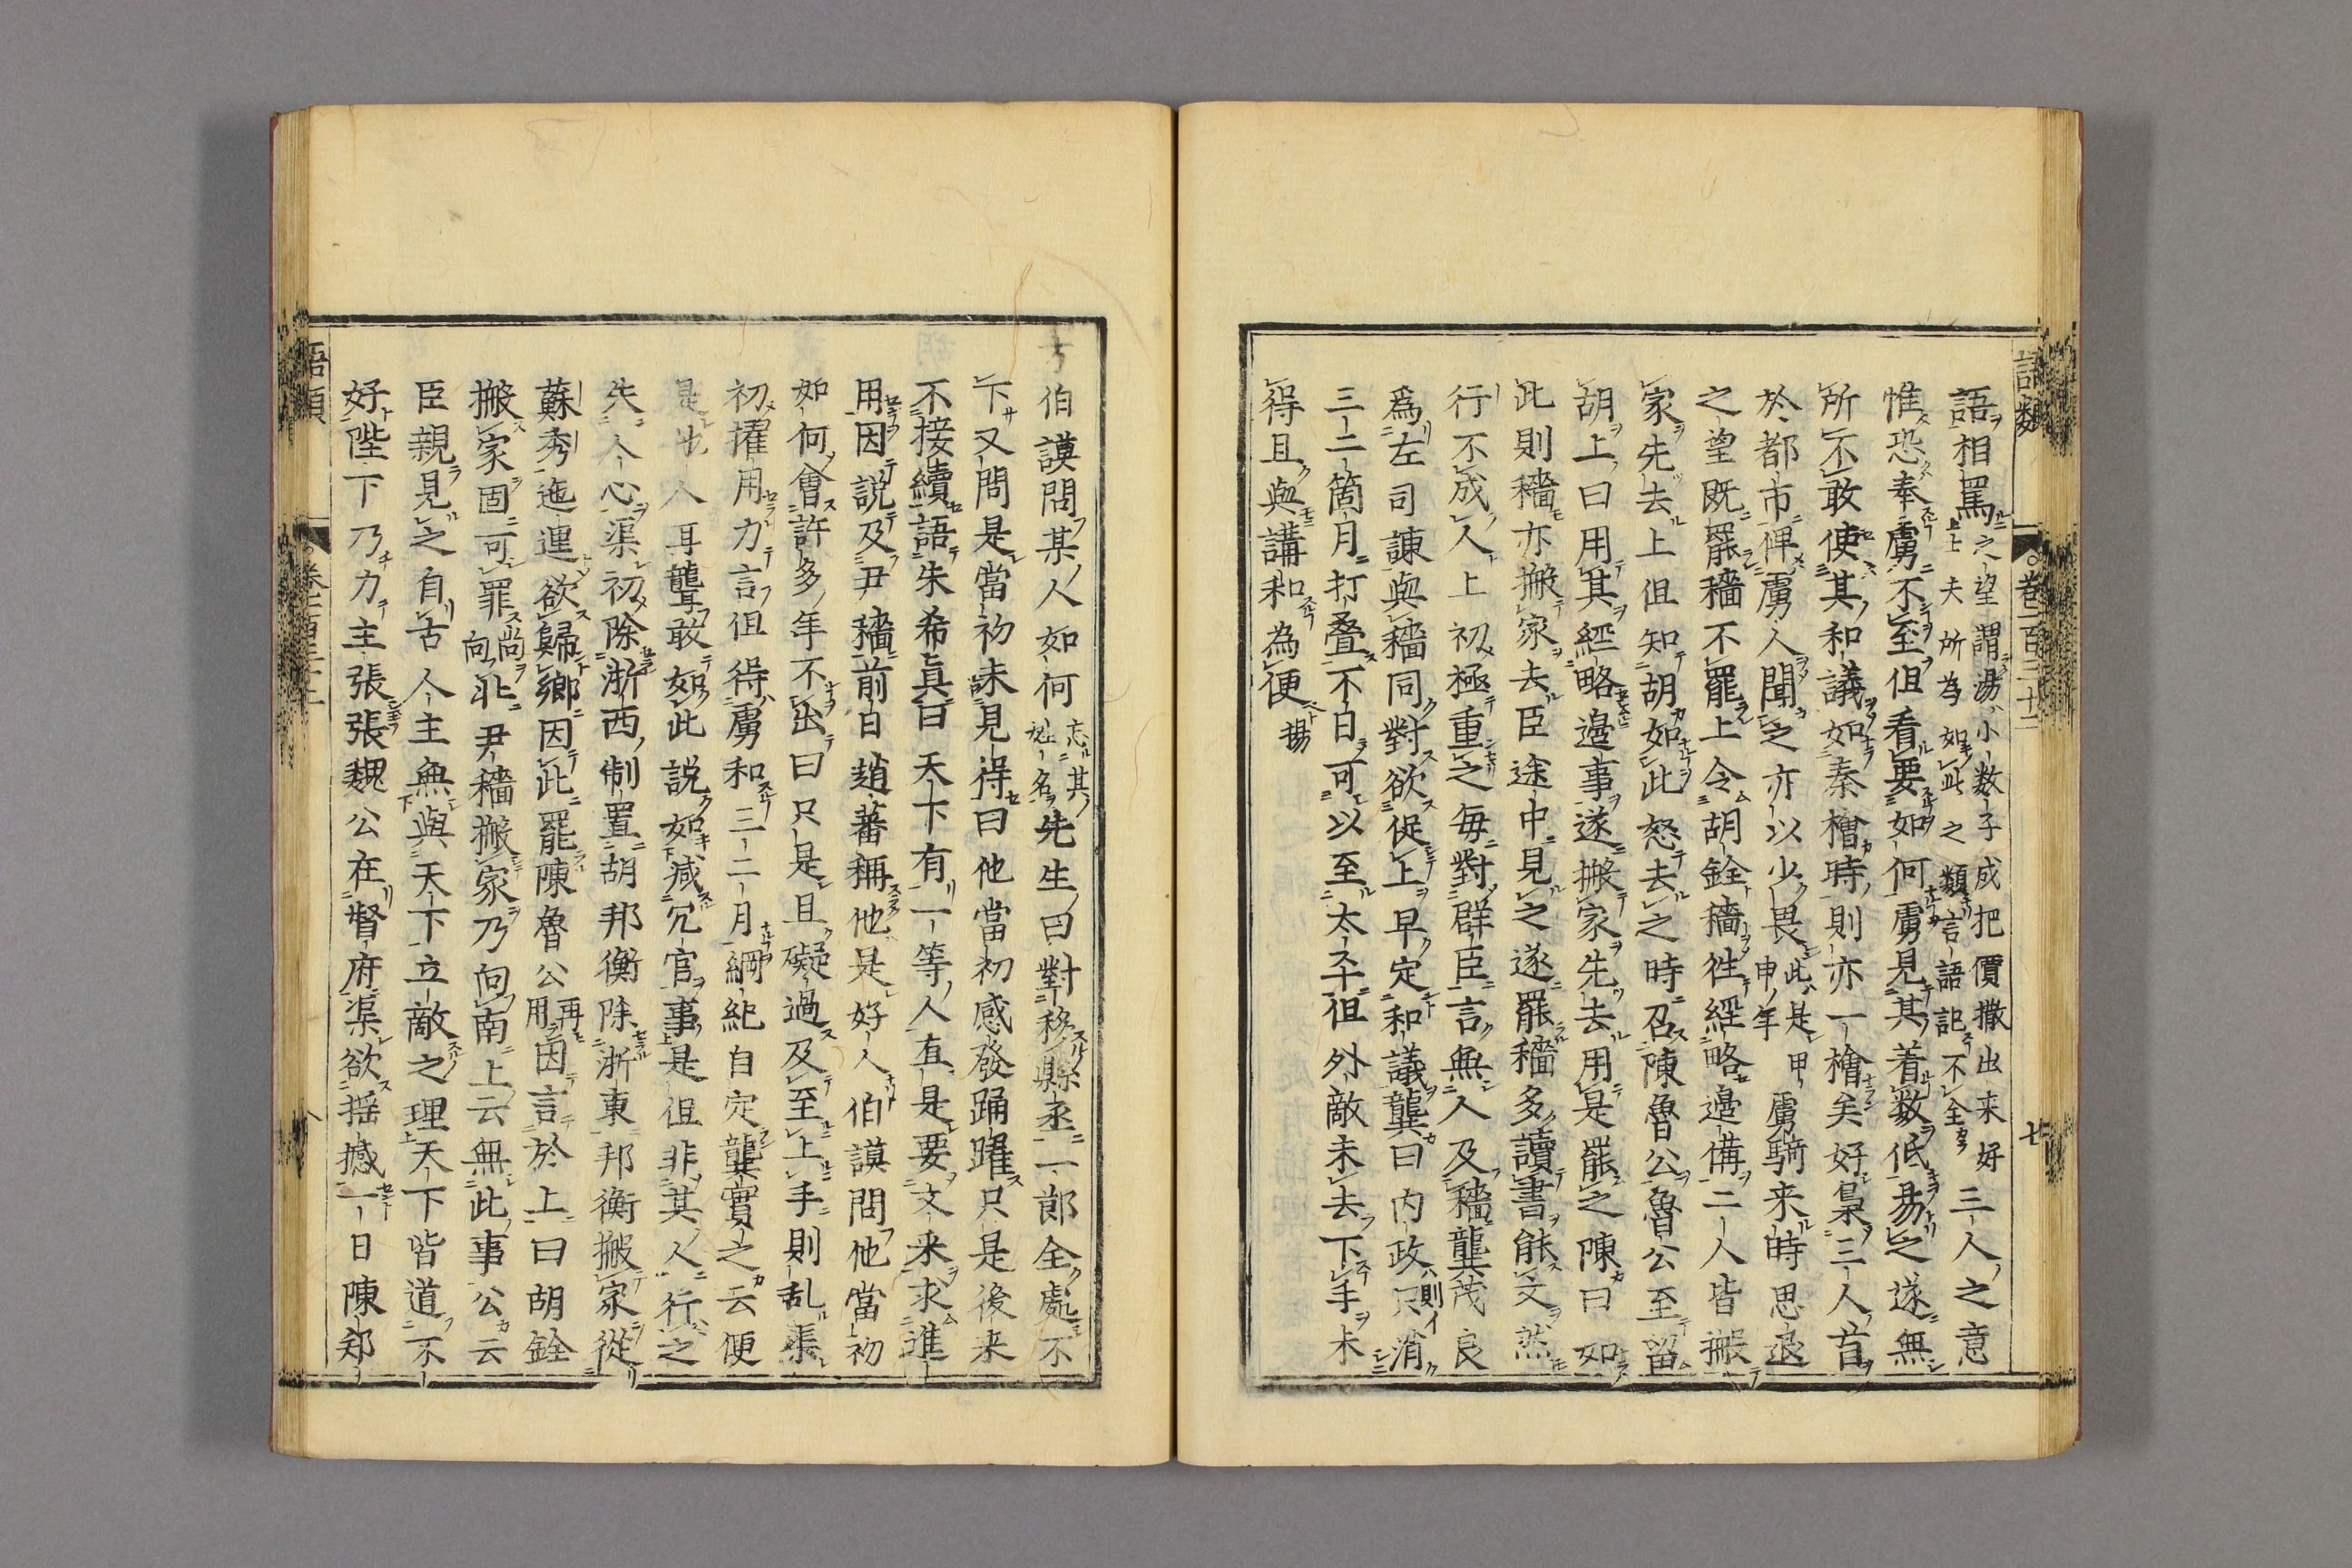 語類 卷一百三十二 七
語相罵之望謂湯小数子成把價撒出来好上士夫所為如此之類言語記不全三人之意
惟恐奉虜不至但看要如何虜見其着数低易之遂無
所不敢使其和議如秦檜時則亦一檜矣好梟三人首
於都市俾虜人聞之亦以少畏此是甲申年虜騎来時思退
之望既罷穡不罷上令胡銓穡往經略邊備二人皆搬
家先去上但知胡如此怒去之時召陳魯公魯公至留
胡上曰用其經略邊事遂搬家先去用是罷之陳曰如
此則穡亦搬家去臣途中見之遂罷穡多讀書能文然
行不成人上初極重之每對群臣言無人及穡龔茂良
爲左司諫與穡同對欲促上早定和議龔曰内政只則イ消
三二箇月打叠不日可以至太平但外敵未去下手未
得且與講和為便揚
方伯謨問某人如何忘其姓名先生曰對移縣丞一節全處不
下又問是當初未見得曰他當初感發踊躍只是後来
不接續語朱希真曰天下有一等人直是要文来求進
用因說及尹穡前日趙蕃稱他是好人伯謨問他當初
如何會許多年不出曰只是且礙過及至上手則乱渠
初擢用力言但得虜和三二月綱紀自定龔實之云便
是也人耳聾敢如此說如减冗官事是但非其人行之
失人心渠初除浙西制置胡邦衡除浙東邦衡搬家從
蘇秀迤運欲歸鄉因此罷陳魯公再用因言於上曰胡銓
搬家固可罪尚向北尹穡搬家乃向南上云無此事公云
臣親見之自古人主無與天下立敵之理天下皆道不
好陛下乃力主張張魏公在督府渠欲揺撼一日陳郑
語類 卷一百三十二